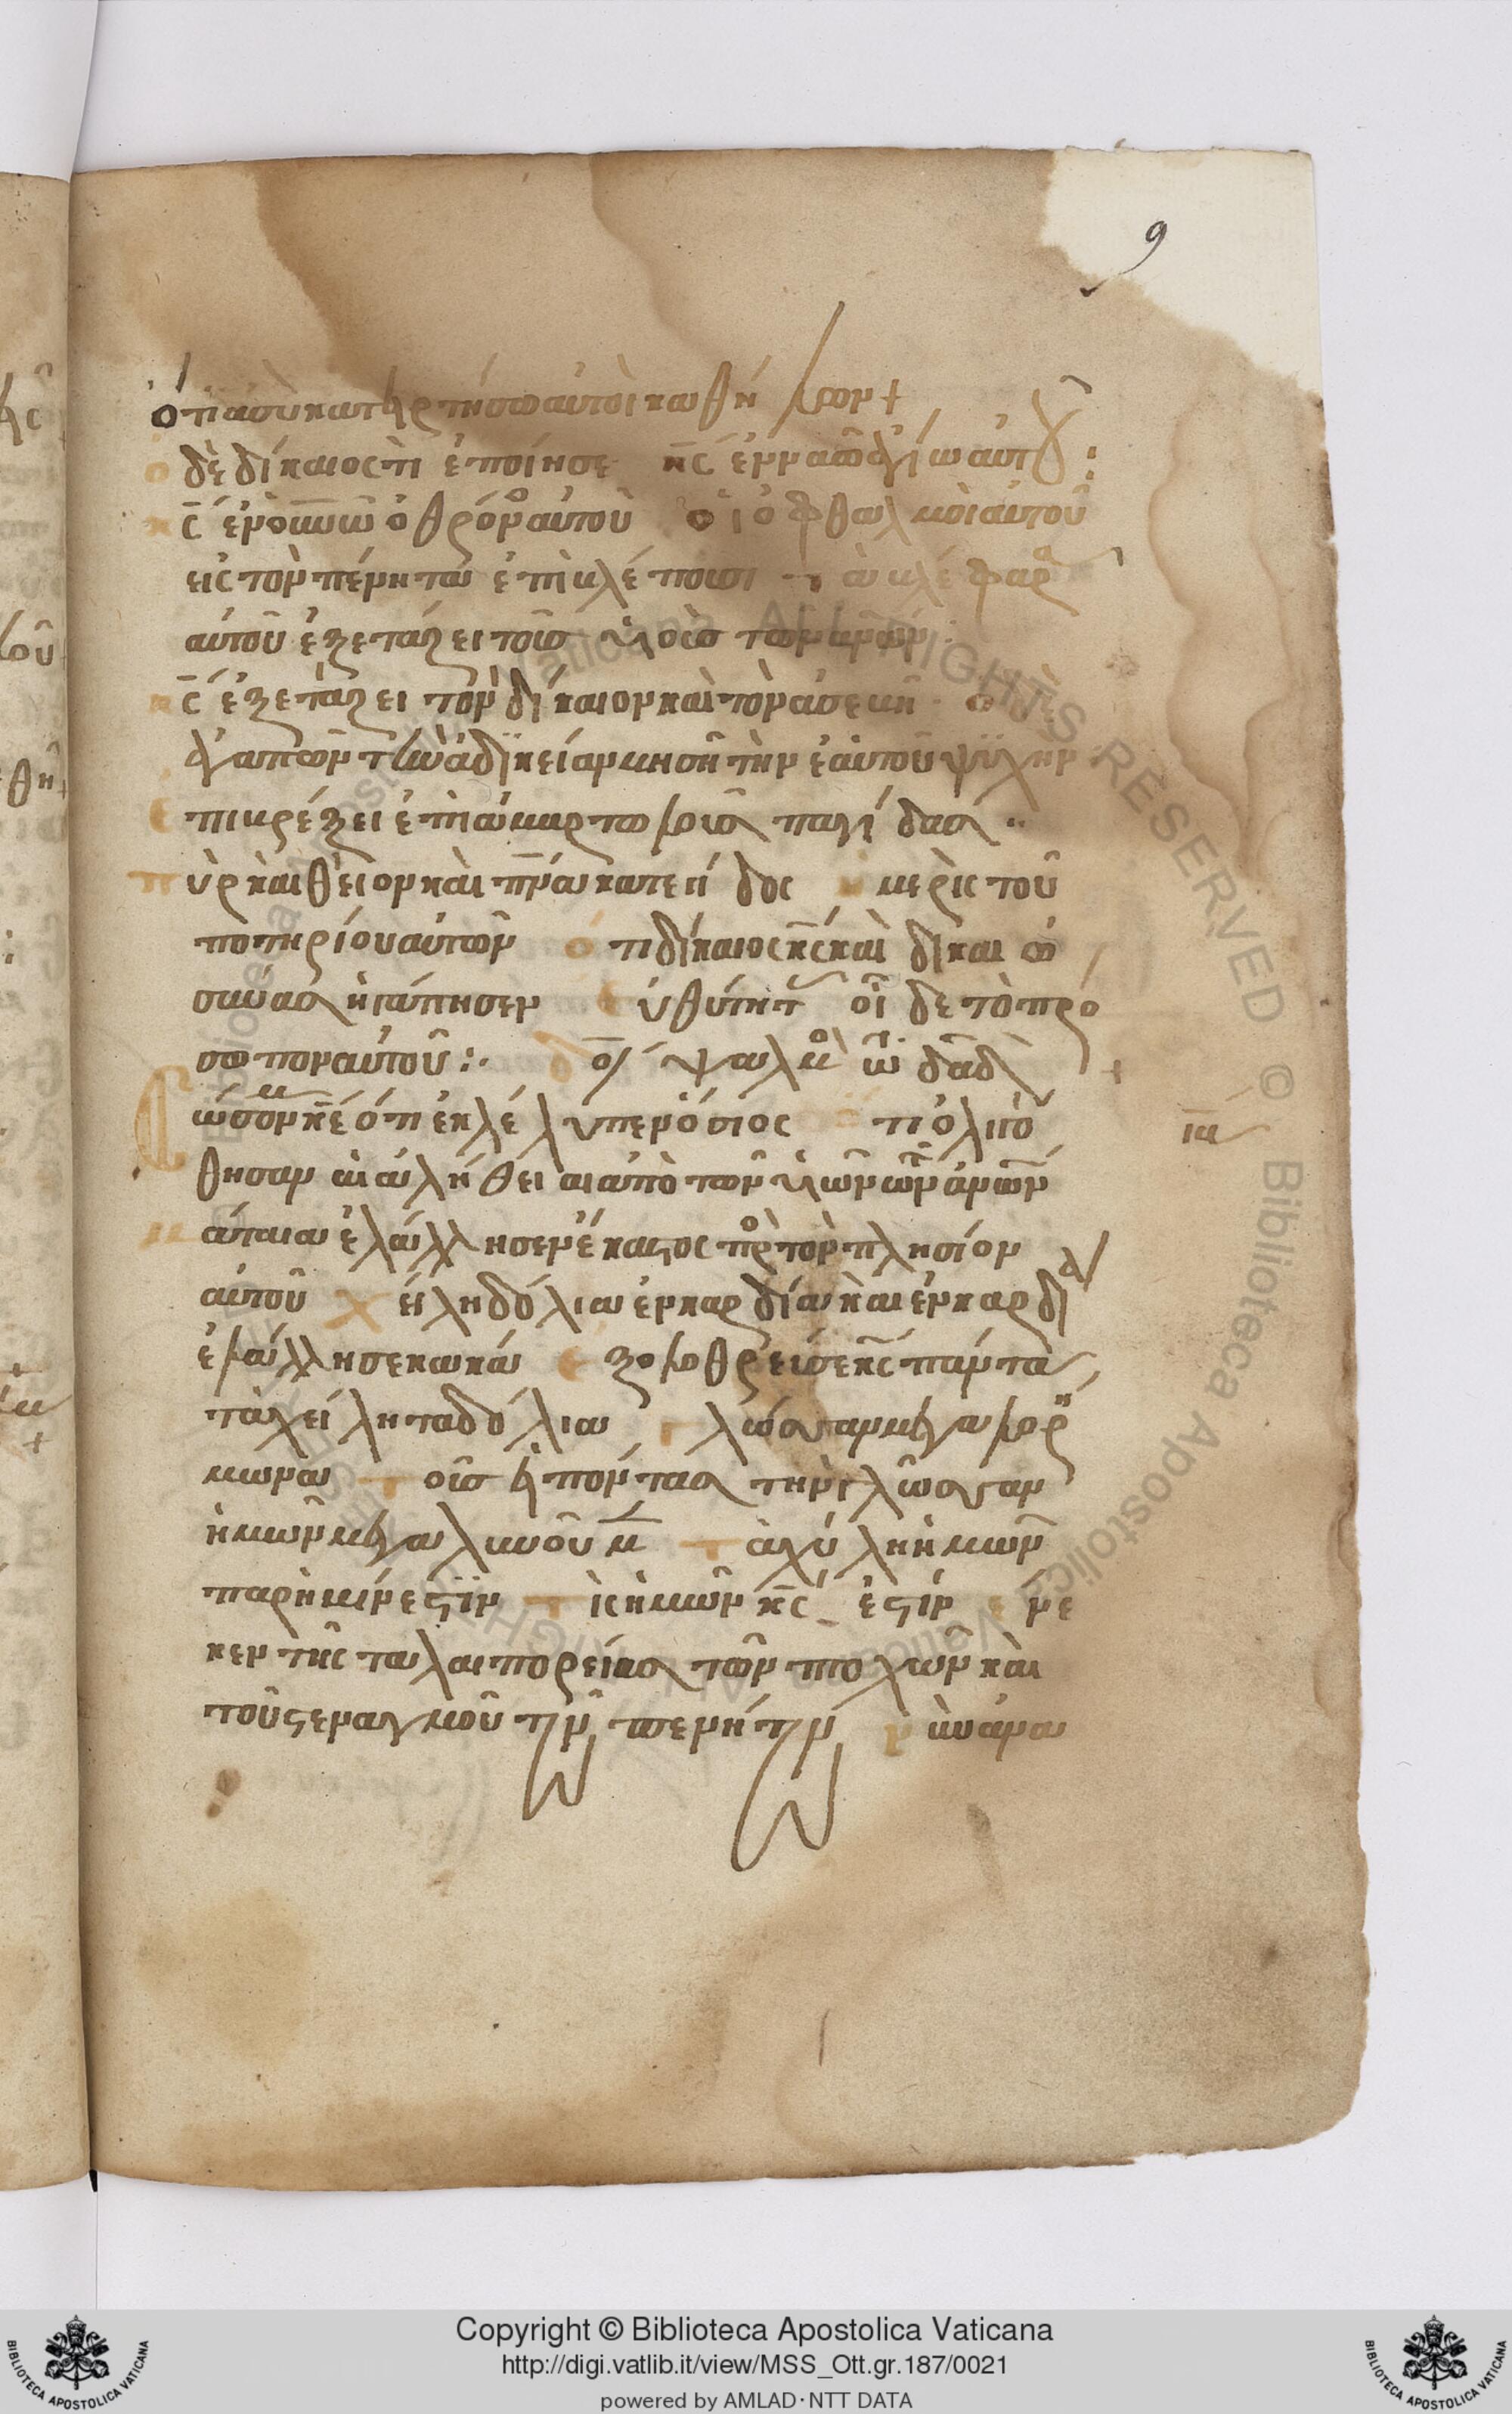 9
ὅτι ἁ σὺ κατηρτήσω αὐτοὶ καθήλων +
ὁ δὲ δίκαιος τὶ ἐποίησε κ̅ς̅ ἐν ναῶ ἁγίω αὐτοῦ :
κ̅ς̅ ἐν ο̅υ̅ν̅ω̅ ὁ θρόνο αὐτοῦ οἱ ὀφθαλμοὶ αὐτοῦ
εἰς τὸν πένητα ἐπιβλέπουσι τὰ βλέφαρα
αὐτοῦ ἐξετάζει τοὺσ υἱοὺσ τῶν ἀνων
κ̅ς̅ ἐξετάζει τὸν δίκαιον καὶ τὸν ἀσεβῆ ὁ
ἀγαπῶν τὴν ἀδικείαν μησῆ τὴν ἑαυτοῦ ψϋχην
ἐπιβρέξει ἐπὶ ἁμαρτολοὺσ παγίδασ ··
πὺρ καὶ θεῖον καὶ π̅ν̅α καταιγίδος μερὶς τοῦ
ποτηρίου αὐτῶν ὅτι δίκαιος κ̅ς̅ καὶ δικαιω
σύνασ ἠγάπησεν εὐθύτητ οἶδε τὸ πρό
σωπον αὐτοῦ :·
ψαλμ τῶ δα̅δ
Σῶσόν μ κ̅ε̅ ὅτι ἐκλέλυπεν ὅσιος ὅτι ὀλιγό
θησαν αἱ ἀλήθειαι ἀπὸ τῶν υἱῶν τῶν ἀνων
ια
μάταια ἐλάλλησεν ἕκαστος πρ τὸν πλησίον
αὐτοῦ χείλη δόλια ἐν καρδία καὶ ἐν καρδία
ἐλάλλησε κακά ἐξολοθρεύσει κ̅ς̅ πάντα
τὰ χείλη τα δόλια γλώσσαν μεγαλορή
μωνα τοὺσ εἰπόντασ τὴν γλῶσσαν
ἡμῶν μεγαλυνοῦμ τὰ χύλη ἡμῶν
παρ ἡμίν ἐστϊν τίς ἡμῶν κ̅ς̅ ἐστίν ἕνε
κεν τῆς ταλαιπορείασ τῶν πτοχῶν καὶ
τοῦ στεναγμοῦ τῶν πενήτων νῦν ἀνα
Copyright © Biblioteca Apostolica Vaticana
http://digi.vatlib.it/view/MSS_Ott.gr.187/0021
powered by AMLAD·NTT DATA